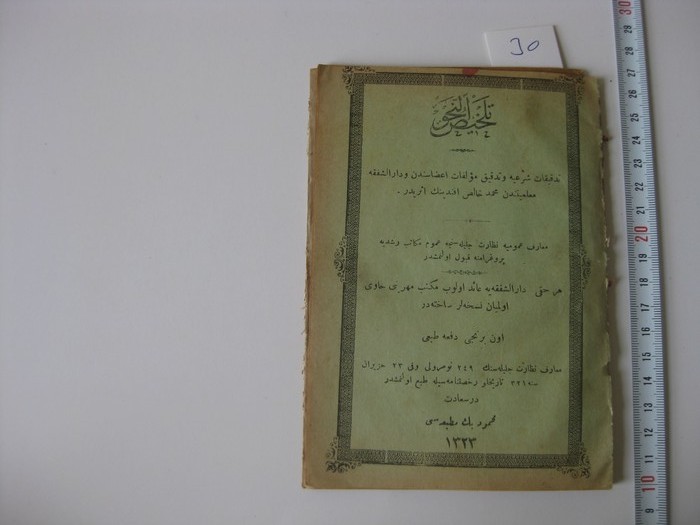 30
تلخيص النحو
تدقيقات شرعيه وتدقيق مؤلفات اعضاسندن ودارالشفقه
معلميندن محمد خالص افندينك اثريدر ـ
معارف عموميه نظارت جليله سنجه عموم مكاتب رشديه
پروغرامنه قبول اولنمشدر
هر حقى دارالشفقه يه عائد اولوب مكتب مهرينى حاوى
اولميان نسخه لر ساخته در
اون برنجى دفعه طبعى
معارف نظارت جليله سنك ٢٤٩ نومرولى وفى ٢٣ حزيران
سنه ٣٢١ تاريخلو رخصتنامه سيله طبع اولنمشدر
درسعادت
محمود بك مطبعه سى
١٣٢٣
30
29
28
27
26
25
24
23
22
21
20
19
18
17
16
15
14
13
12
11
10
9